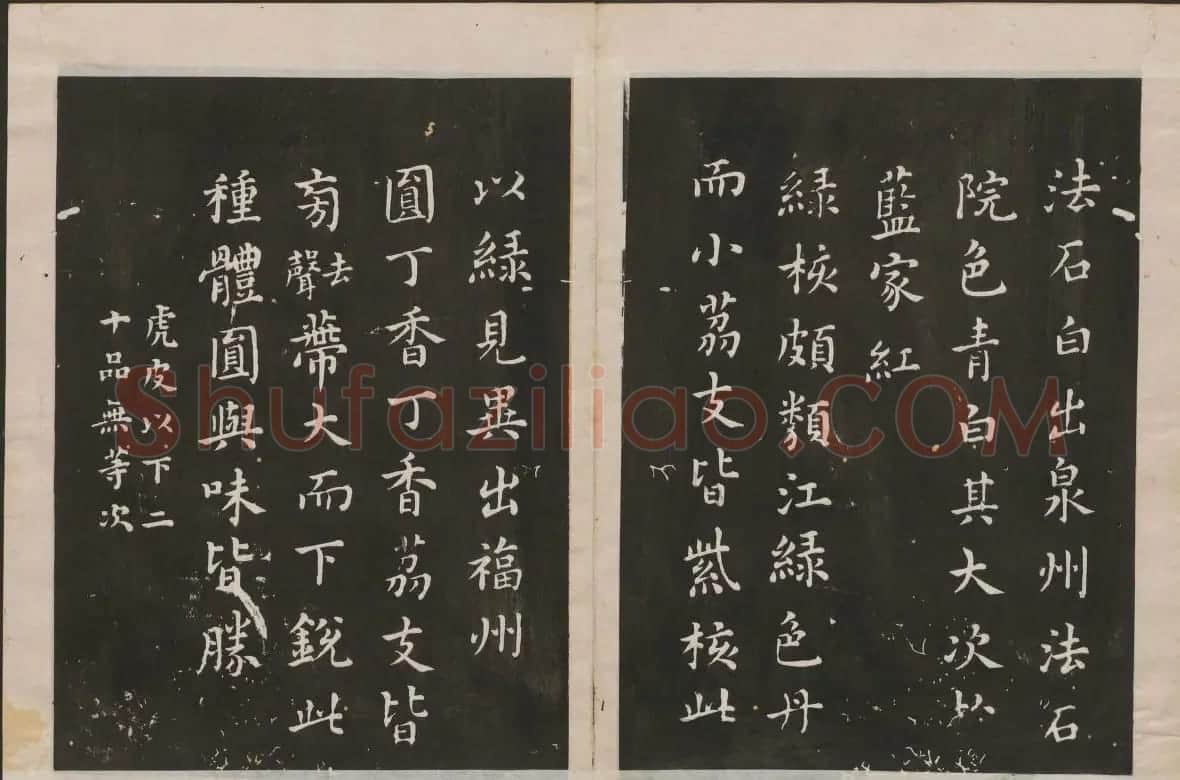 法石白出泉州法石
院色青白其大次於
藍家紅
緑核頗類江緑色丹
而小茘支皆紫核此
以緑見異出福州
圓丁香丁香茘支皆
旁去聲蔕大而下銳此
種體圓與味皆勝
虎皮以下二
十品無等次
Shufaziliao.COM